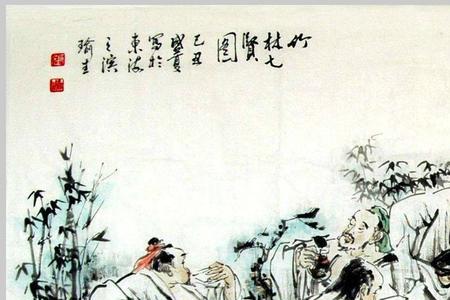 竹
林七
賢
圖
己丑
盛夏
寫於
東海
之濱
瑜生